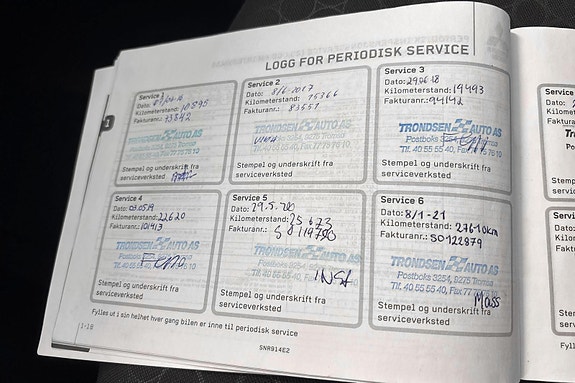 LOGG FOR PERIODISK SERVICE
Service 1
Dato:
Kilometerstand: 10895
Fakturanr.: 73842
TRONDSEN AUTO AS
Stempel og underskrift fra
serviceverksted
Service 2
Dato: 8/6-2017
Kilometerstand: 15366
Fakturanr.: 83551
TRONDSEN AUTO AS
Stempel og underskrift fra
serviceverksted
Service 3
Dato: 29.06.18
Kilometerstand: 19493
Fakturanr.: 94142
TRONDSEN AUTO AS
Postboks 3254
Tlf. 40 55 55 40, Fax 77 78 78 10
Stempel og underskrift fra
serviceverksted
Service 4
Dato: 03.05.19
Kilometerstand: 22620
Fakturanr.: 101413
TRONDSEN AUTO AS
Stempel og underskrift fra
serviceverksted
Service 5
Dato: 29.5.20
Kilometerstand: 25623
Fakturanr.:
TRONDSEN AUTO AS
Postboks 3254
Tlf. 40 55 55 40
Stempel og underskrift fra
serviceverksted
Service 6
Dato: 8/1-21
Kilometerstand: 27610km
Fakturanr.: SO122879
TRONDSEN AUTO AS
Postboks 3254, 9275 Tromsø
Tlf. 40 55 55 40, Fax 77
Stempel og underskrift fra
serviceverksted
Fylles ut i sin helhet hver gang bilen er inne til periodisk service
1-18
SNR914E2